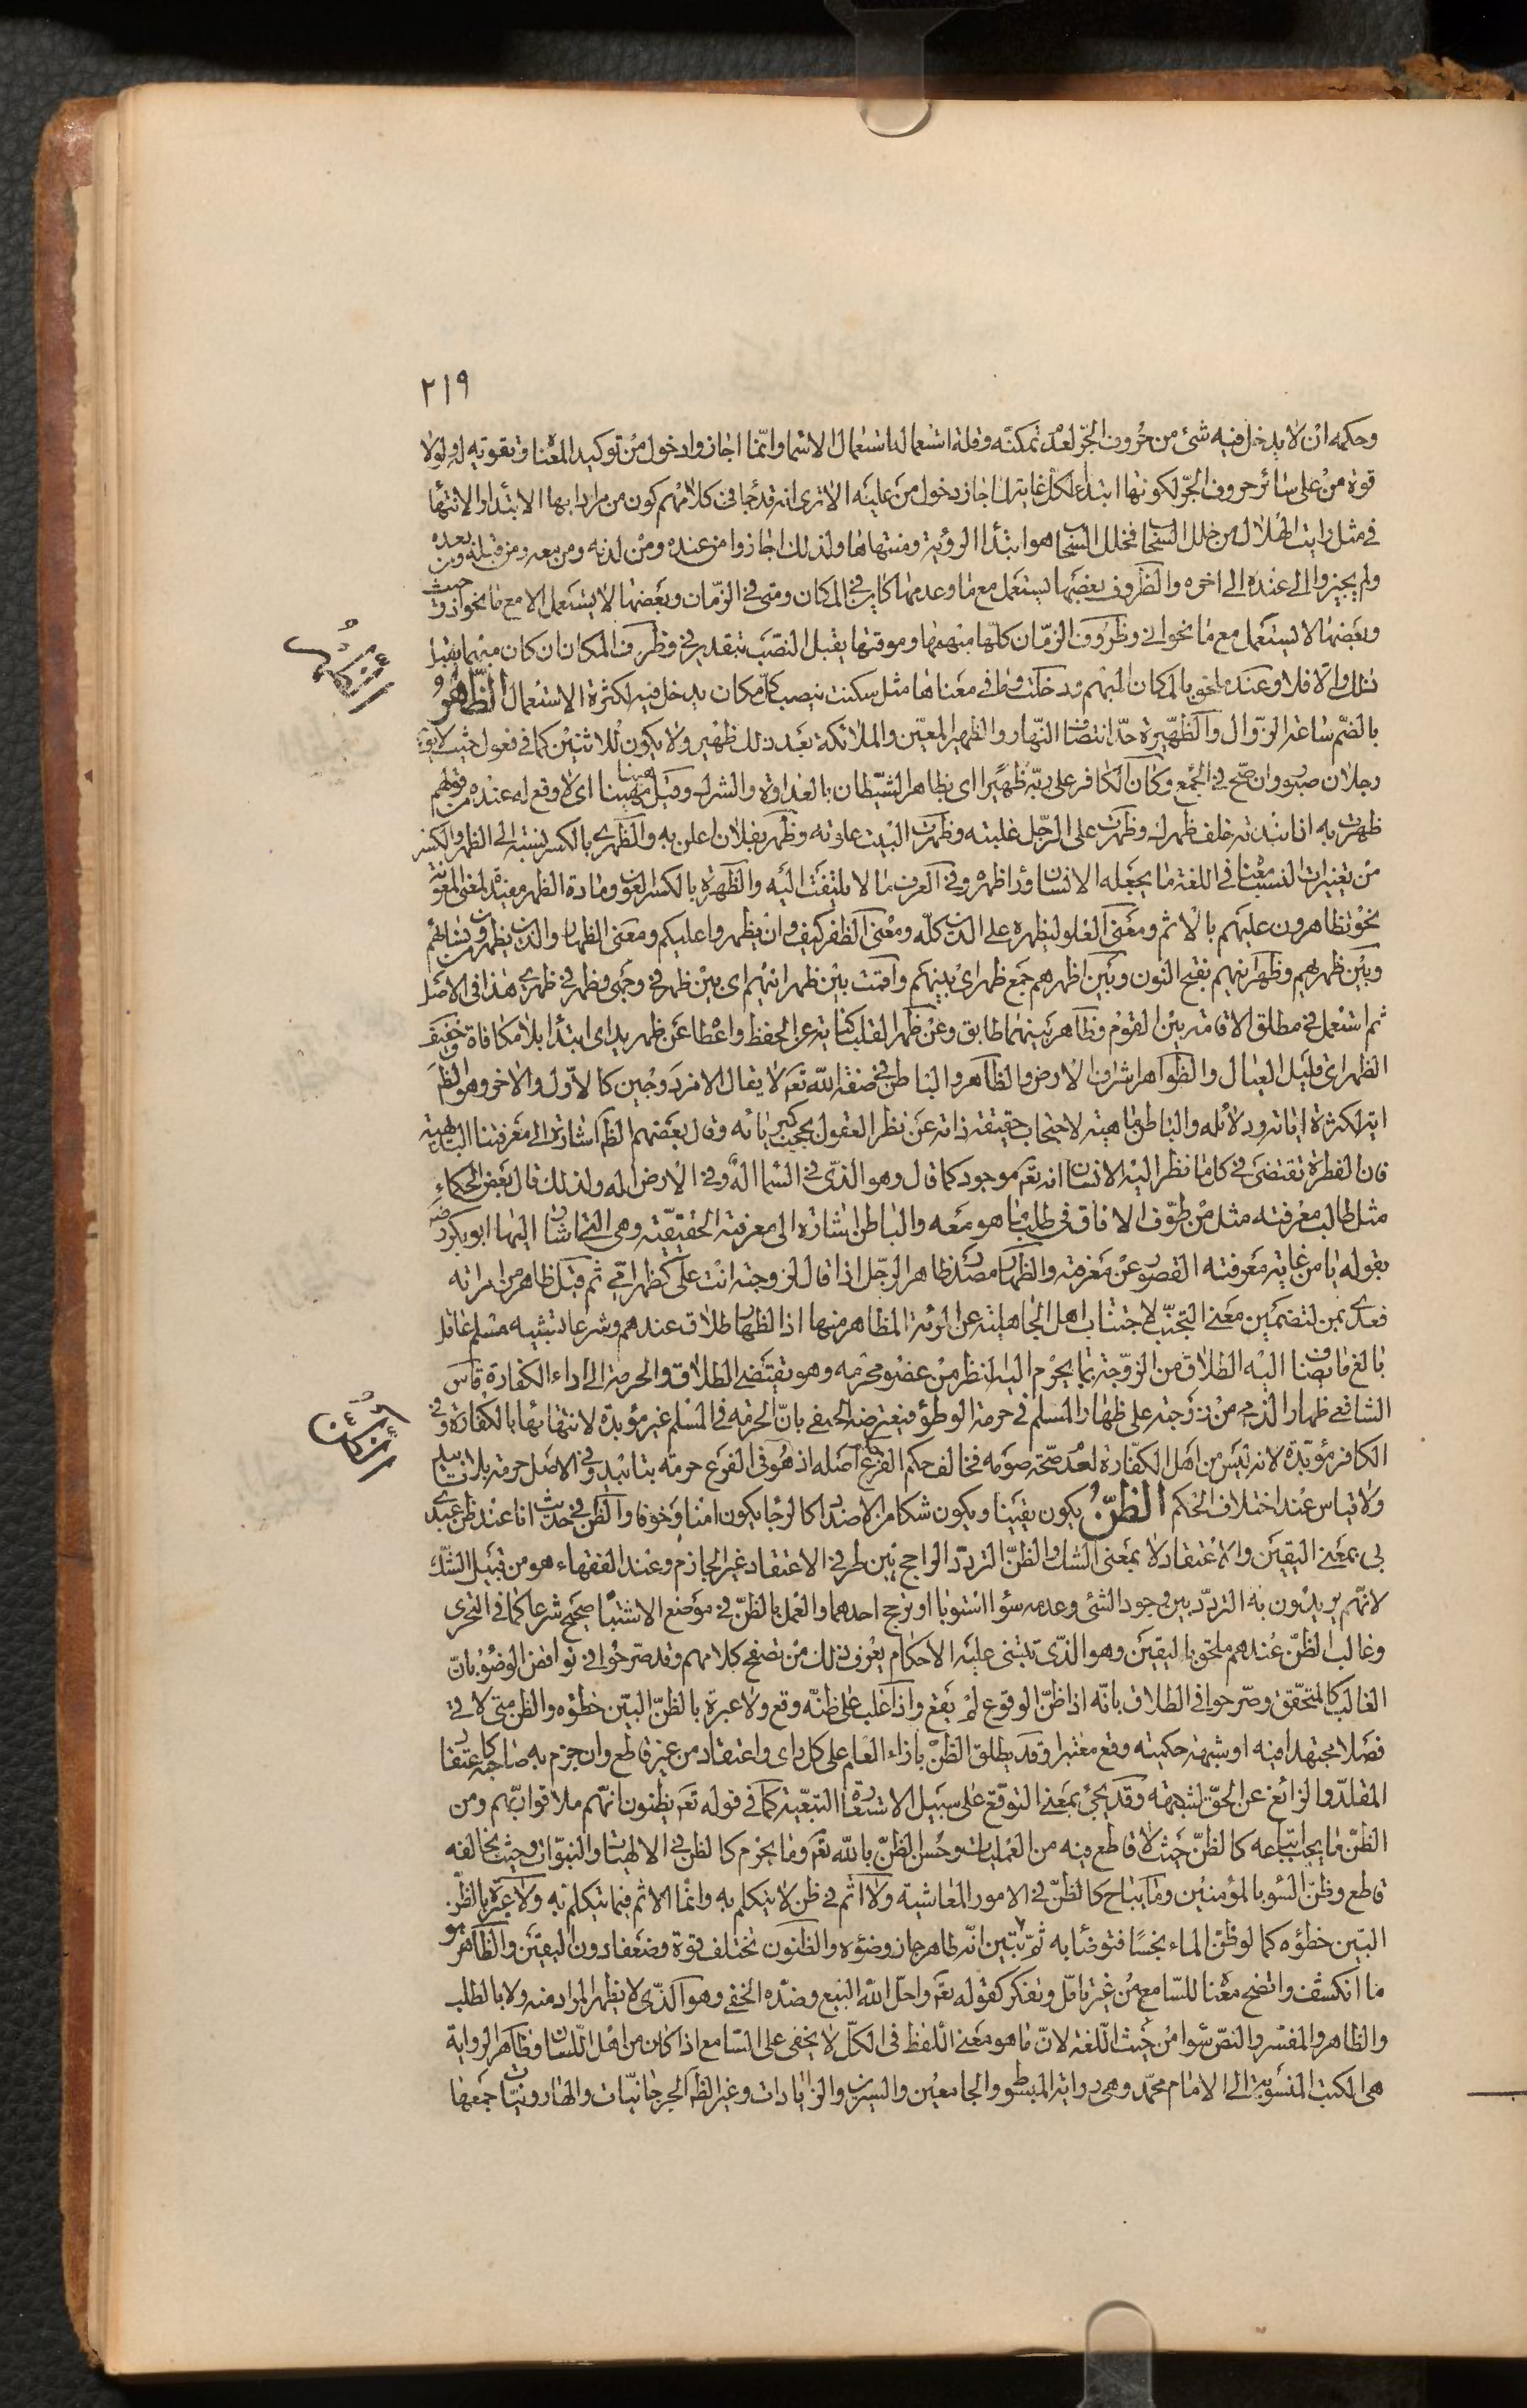 ٢١٩
وحكمه ان لا يدخل فيه شئ من حروف الجر لعدم تمكنه وقلة استعماله استعمال الاسما وانما اجاز وادخول من توكيد المعناه وتقويه له ولولا
قوة من على سائر حروف الجر لكونها ابتدا لكل غاية لما جاز دخول من عليه الا ترى انه قد جا فى كلامهم كون من مرادا بها الابتدا والانتها
فى مثل رايت الهلال من خلل السحاب فخلل السحاب هو ابتدا الرؤية ومنتهاها ولذلك اجازوا من عنده ومن لدنه ومن معه ومن قبله ومن بعده
ولم يجيزوا الى عنده الى اخره والظروف بعضها يستعمل مع ما وعدمها كاين فى المكان ومتى فى الزمان وبعضها لا يستعمل الا مع ما نحو اذ وحيث
وبعضها لا يستعمل مع ما نحو انى وظروف الزمان كلها مبهمها وموقتها يقبل النصب بتقدير فى وظرف المكان ان كان مبهما يقبل
ذلك والا فلا وعنده ملحق بالمكان المبهم ودخلت وما فى معناها مثل سكنت ينصب كل مكان يدخل فيه لكثرة الاستعمال الظهر
بالضم ساعة الزوال والظهيرة حد انتصاف النهار والظهير المعين والملائكة بعد ذلك ظهير ولا يكون للاثنين كما فى فعول حيث لا يقال
رجلان صبور وان صح فى الجمع وكان الكافر على ربه ظهيرا اى يظاهر الشيطان بالعداوة والشرك وقيل هينا مهينا اى لا وقع له عنده من قولهم
ظهرت به اذا نبذته خلف ظهرك وظهرت على الرجل غلبته وظهرت البيت علوته وظهر بفلان اعلن به والظهرى بالكسر نسبة الى الظهر والكسر
من تغييرات النسب معناه فى اللغة ما يجعله الانسان ورا ظهره وفى العرف ما لا يلتفت اليه والظهرة بالكسر العون ومادة الظهر مفيدة لمعنى المعونة
نحو تظاهرون عليهم بالاثم ومعنى العلو ليظهره على الدين كله ومعنى الظفر كيف وان يظهروا عليكم ومعنى الظهار والذين يظهرون من نسائهم
وبين ظهريهم وظهرانيهم بفتح النون وبين اظهرهم جمع ظهر اى بينهم واقمت بين ظهرانيهم اى بين ظهر فى وجهى وظهر فى ظهرى هذا فى الاصل
ثم استعمل فى مطلق الاقامة بين القوم وظاهر بينهما طابق وعن ظهر القلب كناية عن الحفظ واعطا عن ظهر يد اى ابتدا بلا مكافاة وخفيف
الظهر اى قليل العيال والظواهر اشراف الارض والظاهر والباطن فى صفة الله تعم لا يقال الا مزدوجين كالاول والاخر وهو الظم
اية لكثرة اياته ودلائله والباطن ماهية لاحتجاب حقيقة ذاته عن نظر العقول بحجب كبريائه وقال بعضهم الظم اشارة الى معرفتنا البديهية
فان الفطرة تقتضى فى كل ما نظر اليه الانسان انه تعم موجود كما قال وهو الذى فى السما اله وفى الارض اله ولذلك قال بعض الحكماء
مثل طالب معرفته مثل من طوف الافاق فى طلب ما هو معه والباطن اشارة الى معرفته الحقيقية وهى التى اشار اليها ابو بكر رضه
بقوله يا من غاية معرفته القصور عن معرفته والظهار مصدر ظاهر الرجل اذا قال لزوجته انت على كظهر امى ثم قيل ظاهر من امراته
فعدى بمن لتضمين معنى التجنب لاجتناب اهل الجاهلية عن المرئة المظاهر منها اذ الظهار طلاق عندهم وشرعا تشبيه مسلم عاقل
بالغ ما يضاف اليه الطلاق من الزوجة بما يحرم اليه النظر من عضو محرمه وهو يقتضى الطلاق والحرمة الى اداء الكفارة قاس
الشافعى ظهار الذمى من زوجته على ظهار المسلم فى حرمة الوطؤ فيعترضه الحنفى بان الحرمة فى المسلم غير مؤبدة لانتهائها بالكفارة وفى
الكافر مؤبدة لانه ليس من اهل الكفارة لعدم صحة صومه فخالف حكم الفرع اصله اذ هو فى الفرع حرمة بتابيد وفى الاصل حرمة بلا تابيد
ولا قياس عند اختلاف الحكم الظن يكون يقينا ويكون شكا من الاضداد كالرجا يكون امنا وخوفا والظن فى حديث انا عند ظن عبدى
بى بمعنى اليقين والاعتقاد لا بمعنى الشك والظن التردد الراجح بين طرفى الاعتقاد غير الجازم وعند الفقهاء هو من قبيل الشك
لانهم يريدون به التردد بين وجود الشئ وعدمه سؤا استويا او ترجح احدهما والعمل بالظن فى موضع الاشتباه صحيح شرعا كما فى التحرى
وغالب الظن عندهم ملحق باليقين وهو الذى تبتنى عليه الاحكام يعرف ذلك من تصفح كلامهم وقد صرحوا فى نواقض الوضؤ بان
الغالب كالمتحقق وصرحوا فى الطلاق بانه اذا ظن الوقوع لم يقع واذا غلب على ظنه وقع ولا عبرة بالظن البين خطؤه والظن متى لاقى
فصلا مجتهدا فيه او شبهة حكمية وقع معتبرا وقد يطلق الظن بازاء العلم على كل راى واعتقاد من غير قاطع وان جزم به صاحبه كاعتقاد
المقلد والزائغ عن الحق لشبهة وقد يجئ بمعنى التوقع على سبيل الاستعارة التبعية كما فى قوله تعم يظنون انهم ملاقوا ربهم ومن
الظن ما يجب اتباعه كالظن حيث لا قاطع فيه من العمليات وحسن الظن بالله تعم وما يحرم كالظن فى الالهيات والنبوات وحيث يخالفه
قاطع وظن السؤ بالمؤمنين وما يباح كالظن فى الامور المعاشية ولا اثم فى ظن لا يتكلم به وانما الاثم فيما يتكلم به ولا عبرة بالظن
البين خطؤه كما لو ظن الماء نجسا فتوضا به ثم تبين انه طاهر جاز وضؤه والظنون تختلف قوة وضعفا دون اليقين والظاهر هو
ما انكشف واتضح معناه للسامع من غير تامل وتفكر كقوله تعم واحل الله البيع وضده الخفى وهو الذى لا يظهر المراد منه ولا بالطلب
والظاهر والمفسر والنص سوا من حيث اللغة لان ما هو معنى اللفظ فى الكل لا يخفى على السامع اذا كان من اهل اللسان وظاهر الرواية
هى الكتب المنسوبة الى الامام محمد وهى رواية المبسوط والجامعين والسيرين والزيادات وغير الظم الجرجانيات والهارونيات جمعها